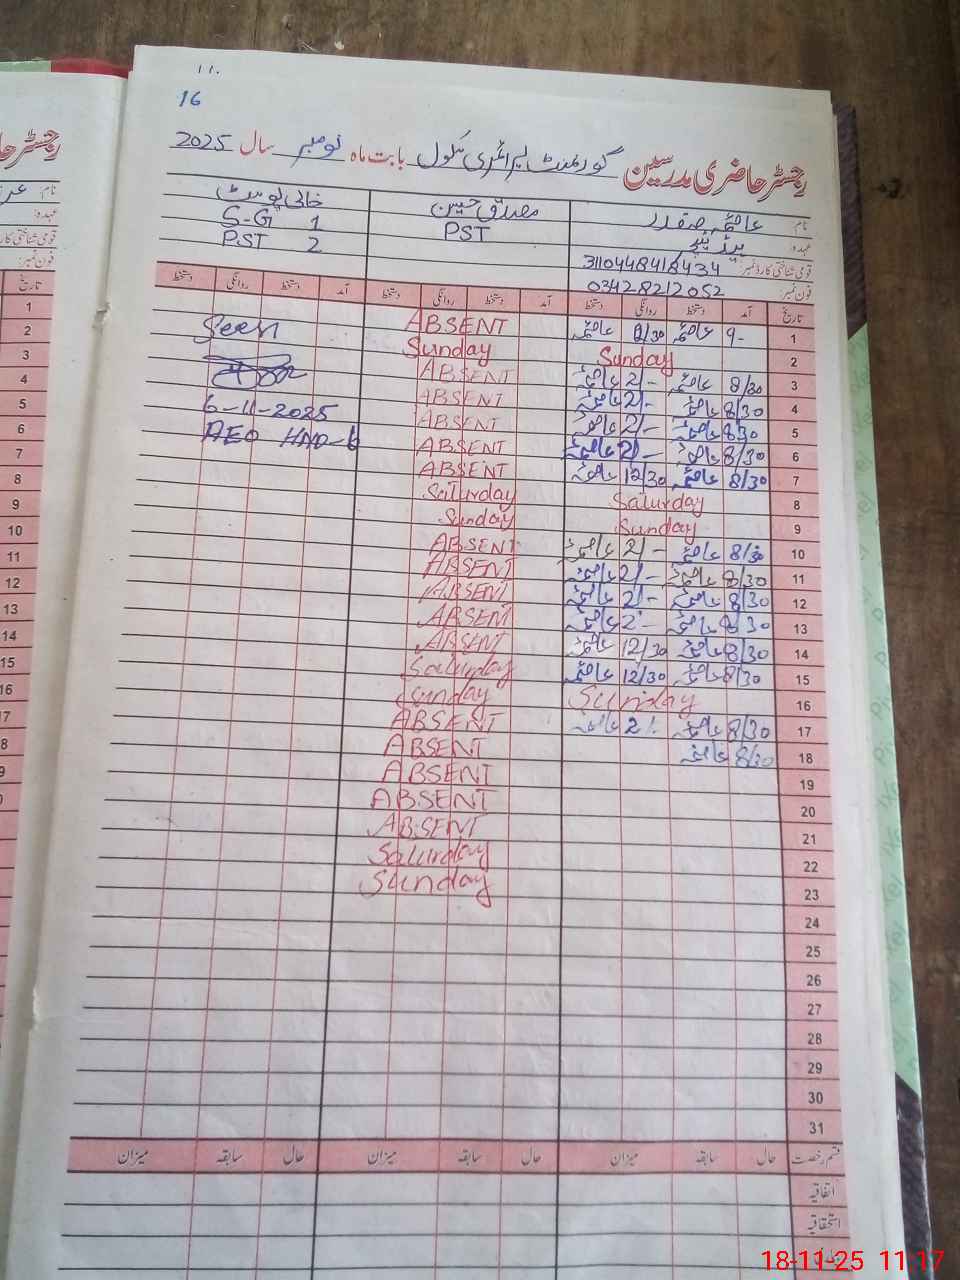 11.
16
رجسٹر حاضری مدرسین گورنمنٹ پرائمری سکول بابت ماہ نومبر سال 2025
نام عاصمہ صفدر مصدق حسین خالی پوسٹ
عہدہ ہیڈ ٹیچر PST S-G 1
قومی شناختی کارڈ نمبر 3110448418434 PST 2
فون نمبر: 03428212052
تاریخ آمد دستخط روانگی دستخط آمد دستخط روانگی دستخط آمد دستخط روانگی دستخط
1 9- عاصمہ عاصمہ ABSENT Seen
2 Sunday Sunday
3 8/30 عاصمہ 2/- عاصمہ ABSENT
4 8/30 عاصمہ 2/- عاصمہ ABSENT 6-11-2025
5 8/30 عاصمہ 2/- عاصمہ ABSENT AEO
6 8/30 عاصمہ 2/- عاصمہ ABSENT
7 8/30 عاصمہ 12/30 عاصمہ ABSENT
8 Saturday Saturday
9 Sunday Sunday
10 8/30 عاصمہ 2/- عاصمہ ABSENT
11 8/30 عاصمہ 2/- عاصمہ ABSENT
12 8/30 عاصمہ 2/- عاصمہ ABSENT
13 8/30 عاصمہ 2/- عاصمہ ABSENT
14 8/30 عاصمہ 12/30 عاصمہ ABSENT
15 8/30 عاصمہ 12/30 عاصمہ Saturday
16 Sunday Sunday
17 8/30 عاصمہ 2/- عاصمہ ABSENT
18 8/30 عاصمہ ABSENT
19 ABSENT
20 ABSENT
21 ABSENT
22 Saturday
23 Sunday
24
25
26
27
28
29
30
31
قسم رخصت حال سابقہ میزان حال سابقہ میزان حال سابقہ میزان
اتفاقیہ
استحقاقیہ
18-11-25 11:17